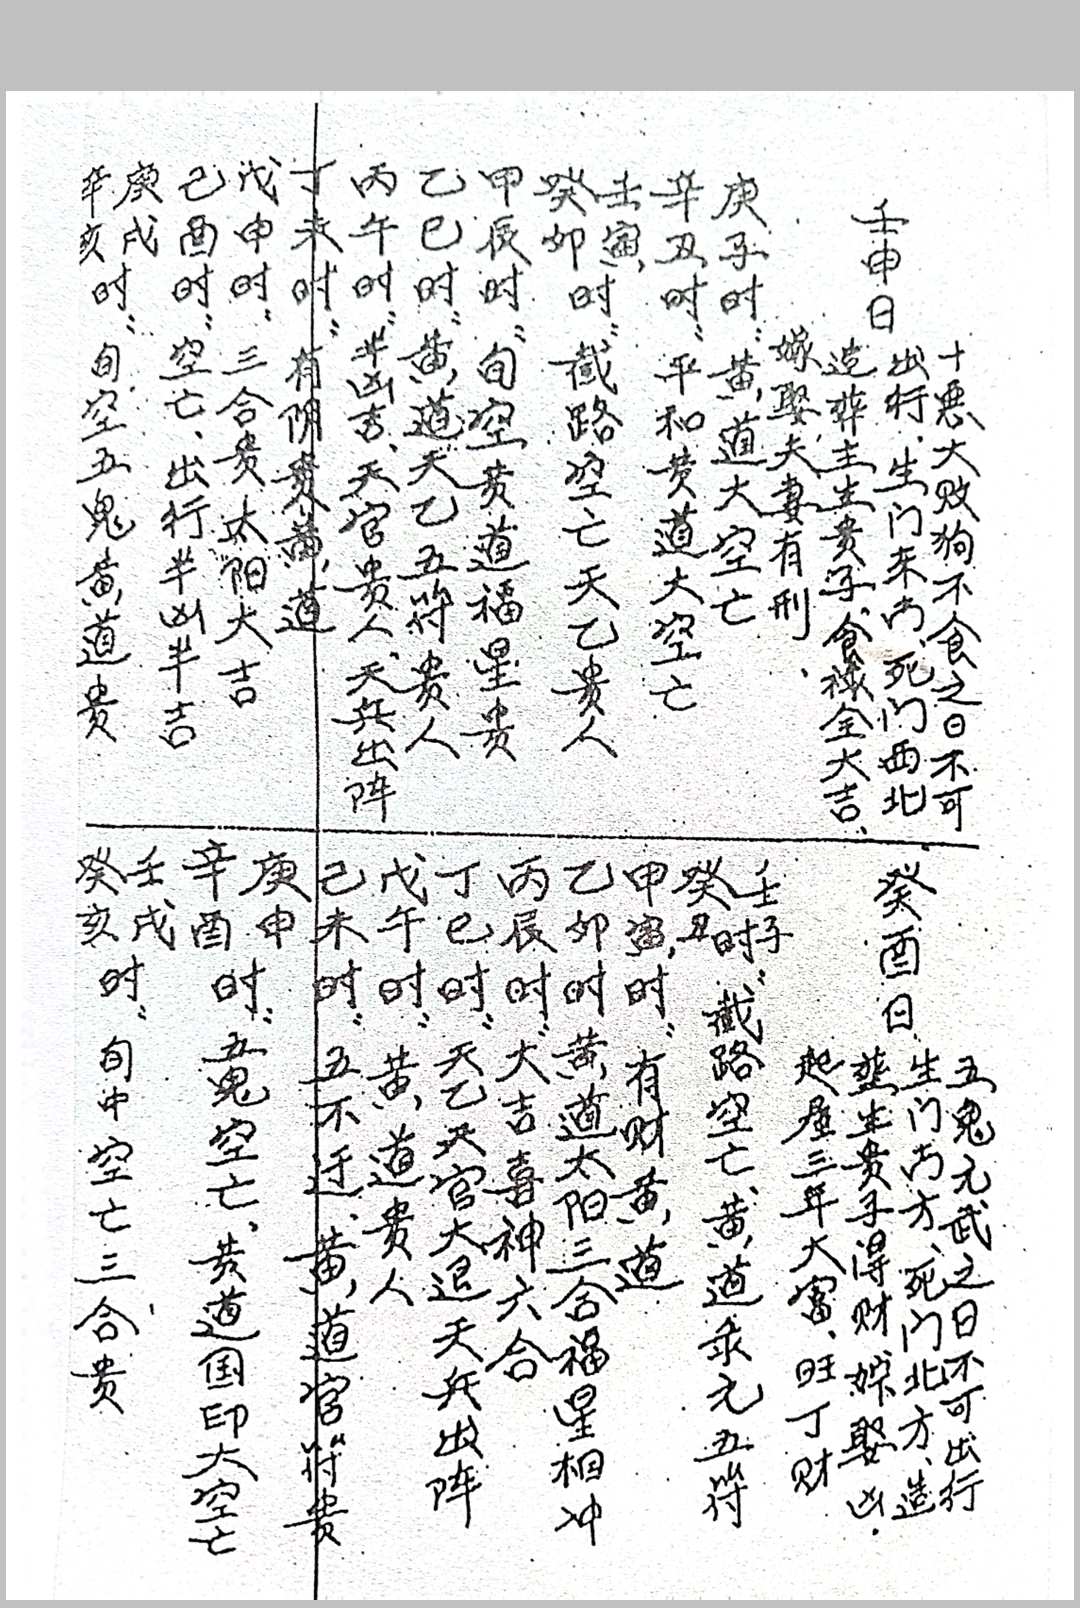 壬申日
十恶大败狗不食之日不可
出行、生门东南、死门西北
造葬主生贵子、食禄全大吉、
嫁娶夫妻有刑、
庚子时：黄道大空亡
辛丑时：平和黄道大空亡
壬寅，
癸卯时：截路空亡天乙贵人
甲辰时：旬空黄道福星贵
乙巳时：黄道天乙五符贵人
丙午时：半凶吉、天官贵人、天兵出阵
丁未时：有阴贵黄道
戊申时：三合贵太阳大吉
己酉时：空亡、出行半凶半吉
庚戌
辛亥时：旬空五鬼黄道贵
癸酉日
五鬼元武之日不可出行
生门南方、死门北方、造
葬生贵子得财、嫁娶凶.
起屋三年大富、旺丁财
壬子
癸丑时：截路空亡、黄道禄元五符
甲寅，时：有财黄道
乙卯时黄道太阳三合福星相冲
丙辰时：大吉喜神六合
丁巳时：天乙天官大退天兵出阵
戊午时：黄道贵人
己未时：五不迂、黄道官符贵
庚申
辛酉时：五鬼空亡、黄道国印大空亡
壬戌
癸亥时：旬中空亡三合贵